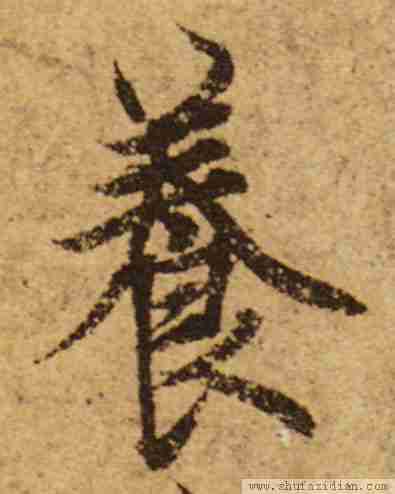 養
www.shufazidian.com